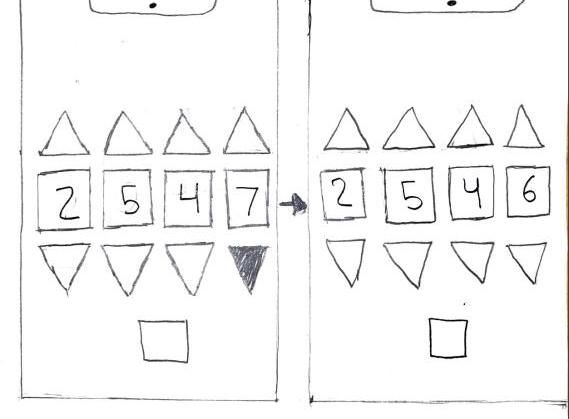 2 5 4 7
2 5 4 6